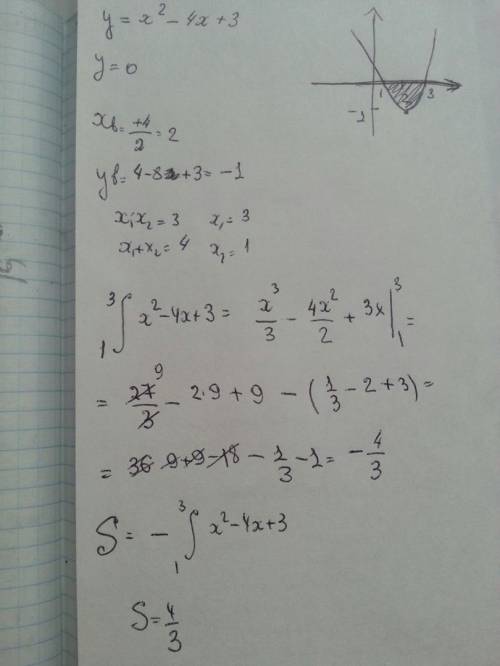 y = x² − 4x + 3
y = 0
xв = +4/2 = 2
yв = 4 − 8 + 3 = −1
x₁·x₂ = 3 x₁ = 3
x₁ + x₂ = 4 x₂ = 1
₁³∫ x² − 4x + 3 = x³/3 − 4x²/2 + 3x |₁³ =
= 27/3 9 − 2·9 + 9 − (1/3 − 2 + 3) =
= 36 9 + 9 − 18 − 1/3 − 1 = −4/3
S = − ₁³∫ x² − 4x + 3
S = 4/3
1 2 3
−1